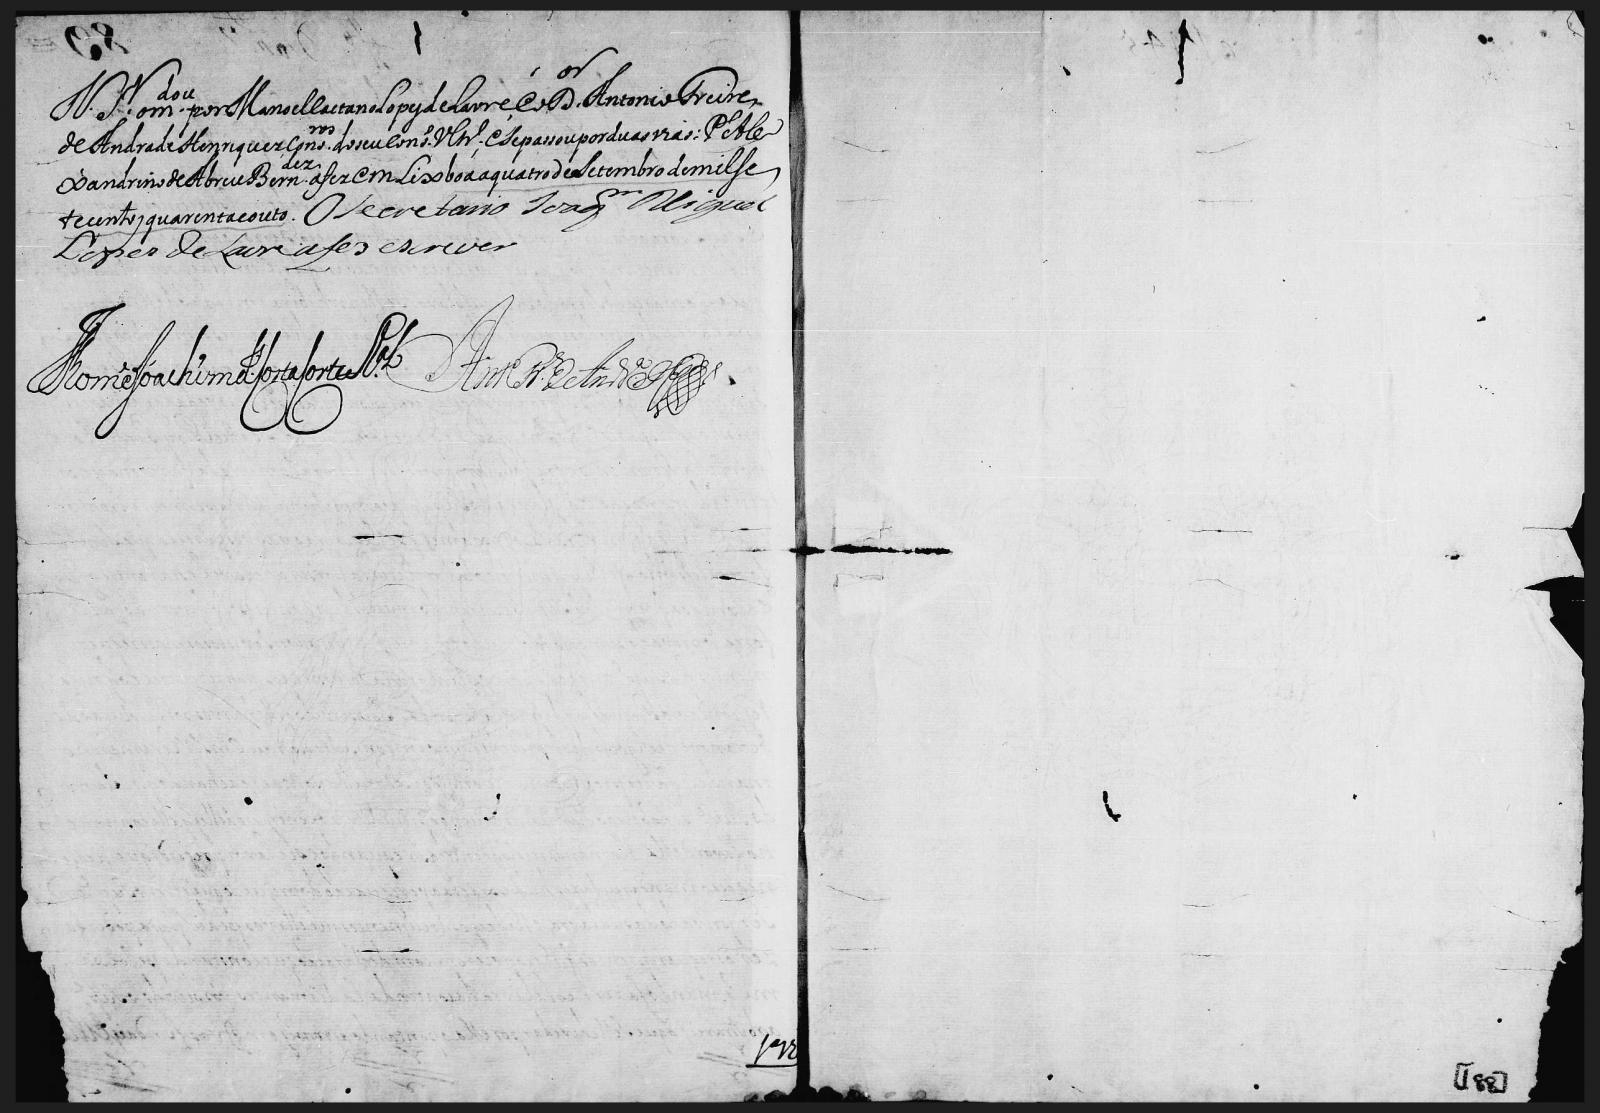 N. S.r o m.dou por Manoel Caetano Lopes de Lavre, e o D.or Antonio Freire
de Andrade Henriquez Cons.ros do seu Cons.o Ultr.o, e se passou por duas vias: P.o Ale
xandrino de Abreu Bern.dez a fez em Lixboa a quatro de Setembro de mil se
tecentos quarenta e outo. O Secretario Joaq.m Miguel
Lopes de Lavre a fez escrever
Thomé Joachim da Costa Corte R.al Ant.o Fr.e de Andr.e Henr.es
1.a via
[188]